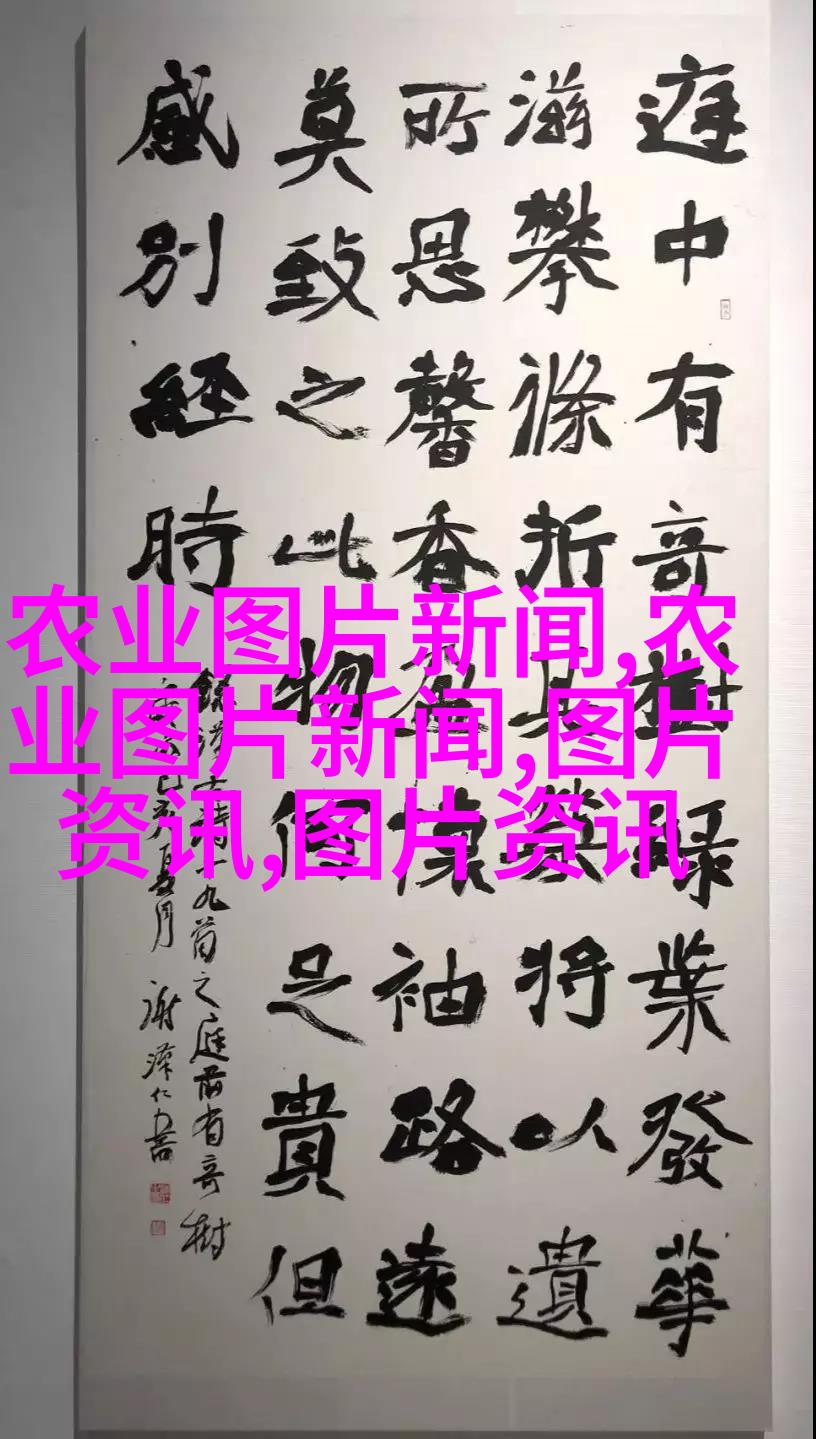 庭中有奇樹緑葉發華
滋攀條折其榮將以遺
所思馨香盈懷袖路遠
莫致之此物何足貴但
感別經時
錄漢古詩十九首之庭前有奇樹
己亥夏月 謝澤仁書
农业图片新闻,农
业图片新闻,图片
资讯,图片资讯